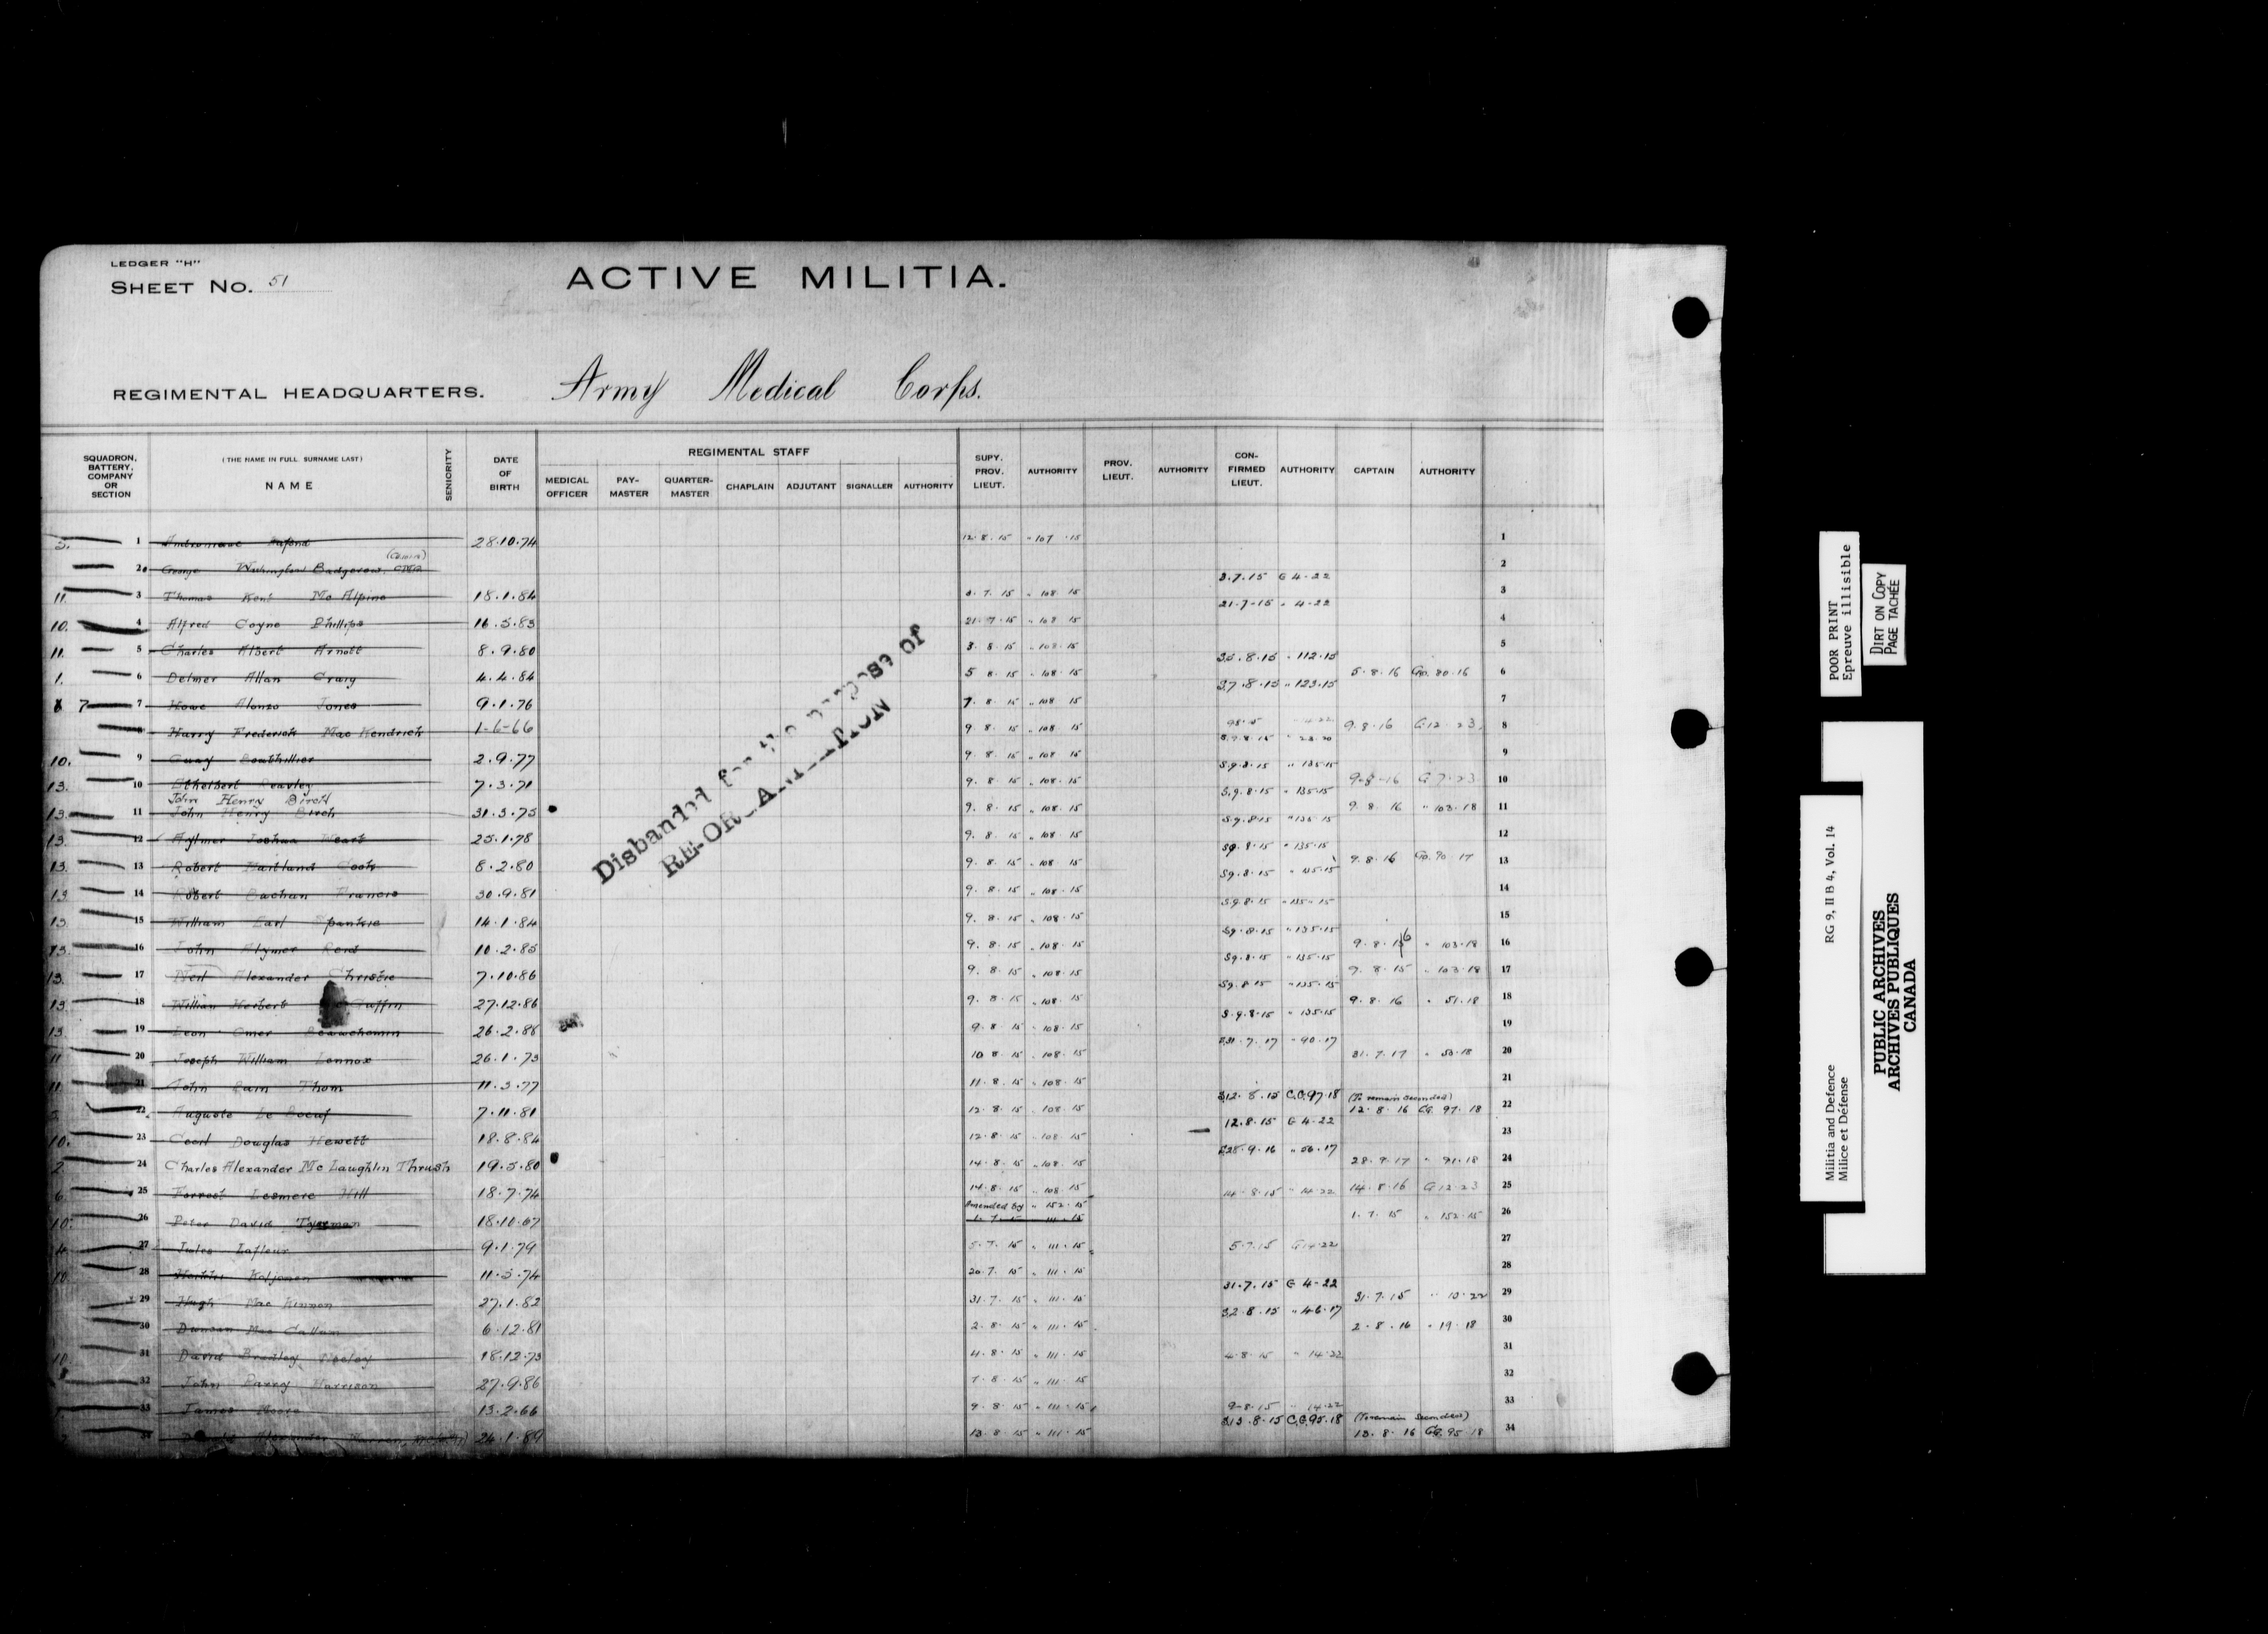 LEDGER "H"
SHEET NO. 51
ACTIVE MILITIA.
REGIMENTAL HEADQUARTERS. Army Medical Corps.
SQUADRON, BATTERY, COMPANY OR SECTION
(THE NAME IN FULL SURNAME LAST) NAME
SENIORITY
DATE OF BIRTH
REGIMENTAL STAFF
MEDICAL OFFICER PAY-MASTER QUARTER-MASTER CHAPLAIN ADJUTANT SIGNALLER AUTHORITY
SUPY. PROV. LIEUT. AUTHORITY PROV. LIEUT. AUTHORITY CON-FIRMED LIEUT. AUTHORITY CAPTAIN AUTHORITY
1 28.10.74 12.8.15 " 107.15 1
2 George Washington Badgerow 2
3.7.15 G 4-22
11. 3 Thomas Kent Mc Alpine 18.1.84 3.7.15 " 108.15 3
21-7-15 " 4-22
10. 4 Alfred Coyne Phillips 16.5.83 21.7.15 " 108.15 4
11. 5 Charles Albert Arnott 8.9.80 3.8.15 " 108.15 5
S5.8.15 " 112.15
1. 6 Delmer Allan Craig 4.4.84 5.8.15 " 108.15 5.8.16 GO.80.16 6
S7.8.15 " 123.15
7 7 Howe Alonzo Jones 9.1.76 7.8.15 " 108.15 7
8 Harry Frederick Mac Kendrick 1-6-66 9.8.15 " 108.15 9.8.16 G12-23 8
10. 9 2.9.77 9.8.15 " 108.15 9
S9.8.15 " 135.15
13. 10 Ethelbert 7.3.71 9.8.15 " 108.15 9-8-16 G 7-23 10
John Henry Birch S.9.8.15 " 135.15
13. 11 John Henry Birch 31.3.75 9.8.15 " 108.15 9.8.16 " 103.18 11
S9.8.15 " 135.15
13. 12 Aylmer Joshua 25.1.78 9.8.15 " 108.15 12
S9.8.15 " 135.15
13. 13 Robert Maitland Cook 8.2.80 9.8.15 " 108.15 9.8.16 GO.90.17 13
13. 14 Francis 30.9.81 9.8.15 " 108.15 14
S9.8.15 " 135.15
13. 15 William Earl Spankie 14.1.84 9.8.15 " 108.15 15
S9.8.15 " 135.15
13. 16 John Alymer Reid 10.2.85 9.8.15 " 108.15 9.8.16 " 103.18 16
S9.8.15 " 135.15
13. 17 Neil Alexander Christie 7.10.86 9.8.15 " 108.15 9.8.15 " 103.18 17
S9.8.15 " 135.15
13. 18 William Herbert Guffin 27.12.86 9.8.15 " 108.15 9.8.16 " 51.18 18
S.9.8.15 " 135.15
13. 19 Leon Omer Beauchemin 26.2.88 9.8.15 " 108.15 19
S31.7.17 " 90.17
11 20 Joseph William Lennox 26.1.73 10.8.15 " 108.15 31.7.17 " 53.18 20
11. 21 John Thom 11.3.77 11.8.15 " 108.15 21
S12.8.15 C.G.97.18 (To remain seconded)
22 Auguste Le Boeuf 7.11.81 12.8.15 " 108.15 12.8.16 CG. 97.18 22
12.8.15 G 4-22
10. 23 Cecil Douglas Hewett 18.8.84 12.8.15 " 108.15 23
S28.9.16 " 56.17
2 24 Charles Alexander Mc Laughlin Thrush 19.5.80 14.8.15 " 108.15 28.9.17 " 91.18 24
6. 25 Forrest Leemere Hill 18.7.74 14.8.15 " 108.15 14-8-15 " 14-22 14.8.16 G12-23 25
Amended by " 152.15
10. 26 Peter David Tyerman 18.10.67 1.7.15 " 111.15 1.7.15 " 152.15 26
4. 27 Jules Lafleur 9.1.79 5.7.15 " 111.15 5.7.15 G14-22 27
10. 28 Koljonen 11.5.74 20.7.15 " 111.15 28
31.7.15 G 4-22
29 Hugh Mac Kinnon 27.1.82 31.7.15 " 111.15 31.7.15 " 10-22 29
S2.8.15 " 46.17
30 Duncan Mac Callum 6.12.81 2.8.15 " 111.15 2.8.16 " 19.18 30
10 31 David Bradley Neeley 18.12.73 4.8.15 " 111.15 4-8-15 " 14-22 31
32 John Parry Harrison 27.9.86 7.8.15 " 111.15 32
33 James Moore 13.2.66 9.8.15 " 111.15 9-8-15 " 14-22 33
S13.8.15 C.G.95.18 (To remain Seconded)
34 Alexander Warren 24.1.89 13.8.15 " 111.15 13.8.16 CG.95.18 34
Disbanded for the purpose of
POOR PRINT
Epreuve illisible
DIRT ON COPY
PAGE TACHÉE
Militia and Defence RG 9, II B 4, Vol. 14
Milice et Défense
PUBLIC ARCHIVES
ARCHIVES PUBLIQUES
CANADA